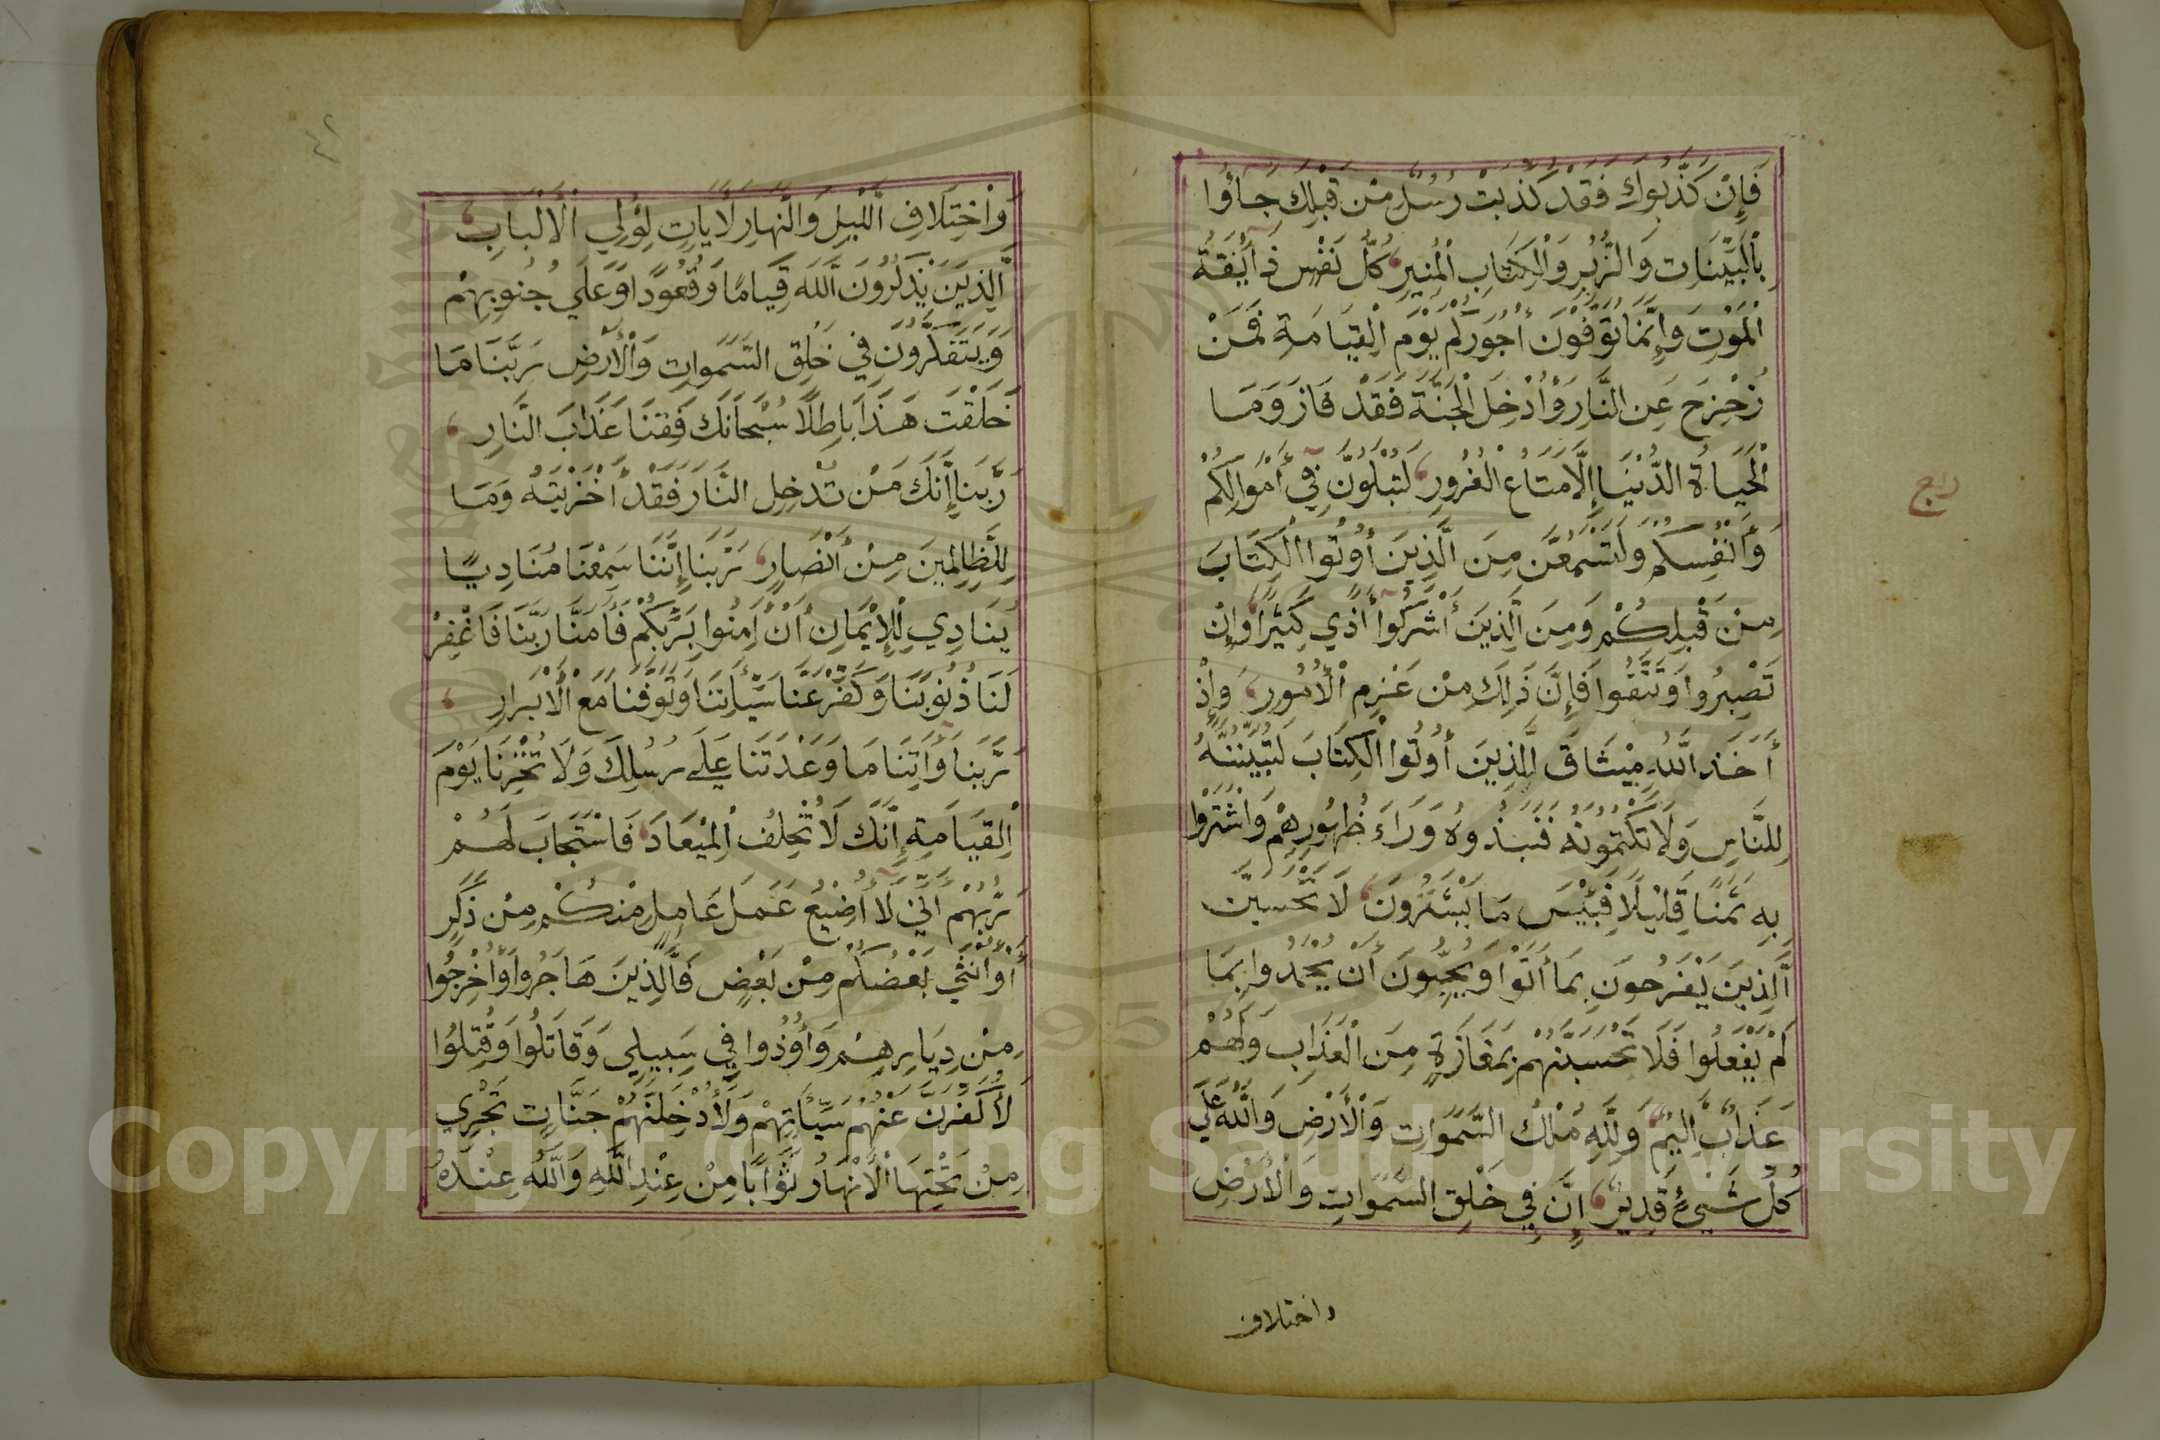 فَإِنْ كَذَّبُوكَ فَقَدْ كُذِّبَتْ رُسُلٌ مِنْ قَبْلِكَ جَاؤُا
بِالْبَيِّنَاتِ وَالزُّبُرِ وَالْكِتَابِ الْمُنِيرِ كُلُّ نَفْسٍ ذَائِقَةُ
الْمَوْتِ وَإِنَّمَا تُوَفَّوْنَ أُجُورَكُمْ يَوْمَ الْقِيَامَةِ فَمَنْ
زُحْزِحَ عَنِ النَّارِ وَأُدْخِلَ الْجَنَّةَ فَقَدْ فَازَ وَمَا
الْحَيَاةُ الدُّنْيَا إِلَّا مَتَاعُ الْغُرُورِ لَتُبْلَوُنَّ فِي أَمْوَالِكُمْ
وَأَنْفُسِكُمْ وَلَتَسْمَعُنَّ مِنَ الَّذِينَ أُوتُوا الْكِتَابَ
مِنْ قَبْلِكُمْ وَمِنَ الَّذِينَ أَشْرَكُوا أَذًي كَثِيرًا وَإِنْ
تَصْبِرُوا وَتَتَّقُوا فَإِنَّ ذَلِكَ مِنْ عَزْمِ الْأُمُورِ وَإِذْ
أَخَذَ اللَّهُ مِيْثَاقَ الَّذِينَ أُوتُوا الْكِتَابَ لَتُبَيِّنُنَّهُ
لِلنَّاسِ وَلَا تَكْتُمُونَهُ فَنَبَذُوهُ وَرَاءَ ظُهُورِهِمْ وَاشْتَرَوْا
بِهِ ثَمَنًا قَلِيلًا فَبِئْسَ مَا يَشْتَرُونَ لَا تَحْسَبَنَّ
الَّذِينَ يَفْرَحُونَ بِمَا أَتَوْا وَيُحِبُّونَ أَنْ يُحْمَدُوا بِمَا
لَمْ يَفْعَلُوا فَلَا تَحْسَبَنَّهُمْ بِمَفَازَةٍ مِنَ الْعَذَابِ وَلَهُمْ
عَذَابٌ أَلِيْمٌ وَلِلَّهِ مُلْكُ السَّمَوَاتِ وَالْأَرْضِ وَاللَّهُ عَلَي
كُلِّ شَيْءٍ قَدِيرٌ إِنَّ فِي خَلْقِ السَّمَوَاتِ وَالْأَرْضِ
واختلاف
راج
٤٢
وَاخْتِلَافِ اللَّيْلِ وَالنَّهَارِ لَآيَاتٍ لِؤُلِي الْأَلْبَابِ
الَّذِينَ يَذْكُرُونَ اللَّهَ قِيَامًا وَقُعُودًا وَعَلَي جُنُوبِهِمْ
وَيَتَفَكَّرُونَ فِي خَلْقِ السَّمَوَاتِ وَالْأَرْضِ رَبَّنَا مَا
خَلَقْتَ هَذَا بَاطِلًا سُبْحَانَكَ فَقِنَا عَذَابَ النَّارِ
رَبَّنَا إِنَّكَ مَنْ تُدْخِلِ النَّارَ فَقَدْ أَخْزَيْتَهُ وَمَا
لِلظَّالِمِينَ مِنْ أَنْصَارٍ رَبَّنَا إِنَّنَا سَمِعْنَا مُنَادِيًا
يُنَادِي لِلْإِيْمَانِ أَنْ آمِنُوا بِرَبِّكُمْ فَآمَنَّا رَبَّنَا فَاغْفِرْ
لَنَا ذُنُوبَنَا وَكَفِّرْ عَنَّا سَيِّئَاتِنَا وَتَوَفَّنَا مَعَ الْأَبْرَارِ
رَبَّنَا وَآتِنَا مَا وَعَدْتَنَا عَلَي رُسُلِكَ وَلَا تُخْزِنَا يَوْمَ
الْقِيَامَةِ إِنَّكَ لَا تُخْلِفُ الْمِيْعَادَ فَاسْتَجَابَ لَهُمْ
رَبُّهُمْ أَنِّي لَا أُضِيْعُ عَمَلَ عَامِلٍ مِنْكُمْ مِنْ ذَكَرٍ
أَوْ أُنْثَي بَعْضُكُمْ مِنْ بَعْضٍ فَالَّذِينَ هَاجَرُوا وَأُخْرِجُوا
مِنْ دِيَارِهِمْ وَأُوْذُوا فِي سَبِيلِي وَقَاتَلُوا وَقُتِلُوا
لَأُكَفِّرَنَّ عَنْهُمْ سَيِّئَاتِهِمْ وَلَأُدْخِلَنَّهُمْ جَنَّاتٍ تَجْرِي
مِنْ تَحْتِهَا الْأَنْهَارُ ثَوَابًا مِنْ عِنْدِ اللَّهِ وَاللَّهُ عِنْدَهُ
Copyright © King Saud University
1957